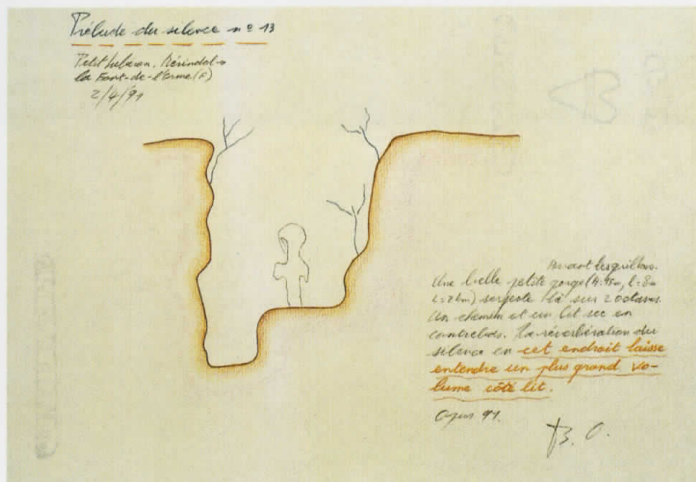 Prélude du silence nº 13
Petit Luberon. Mérindol →
la Font-de-l'Orme (F)
2/4/91
Avant les grillons.
Une belle petite gorge (H. 15m, l = 8m
L = 2 km) serpente là sur 2 octaves.
Un chemin et un lit sec en
contrebas. La réverbération du
silence en cet endroit laisse
entendre un plus grand vo-
lume côté lit.
Opus 91.
B. C.